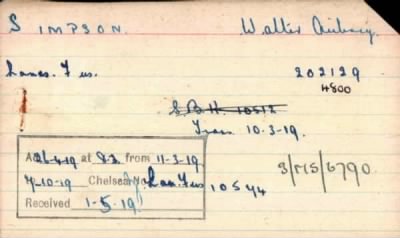 SIMPSON. Walter
Lancs. Fus. 202129
4800
S.B.H. 10512
Tran 10-3-19.
26-4-19 at 8d. from 11-3-19
7-10-19 Chelsea No. Lan. Fus 10544
3/MS/6790.
Received 1-5-19